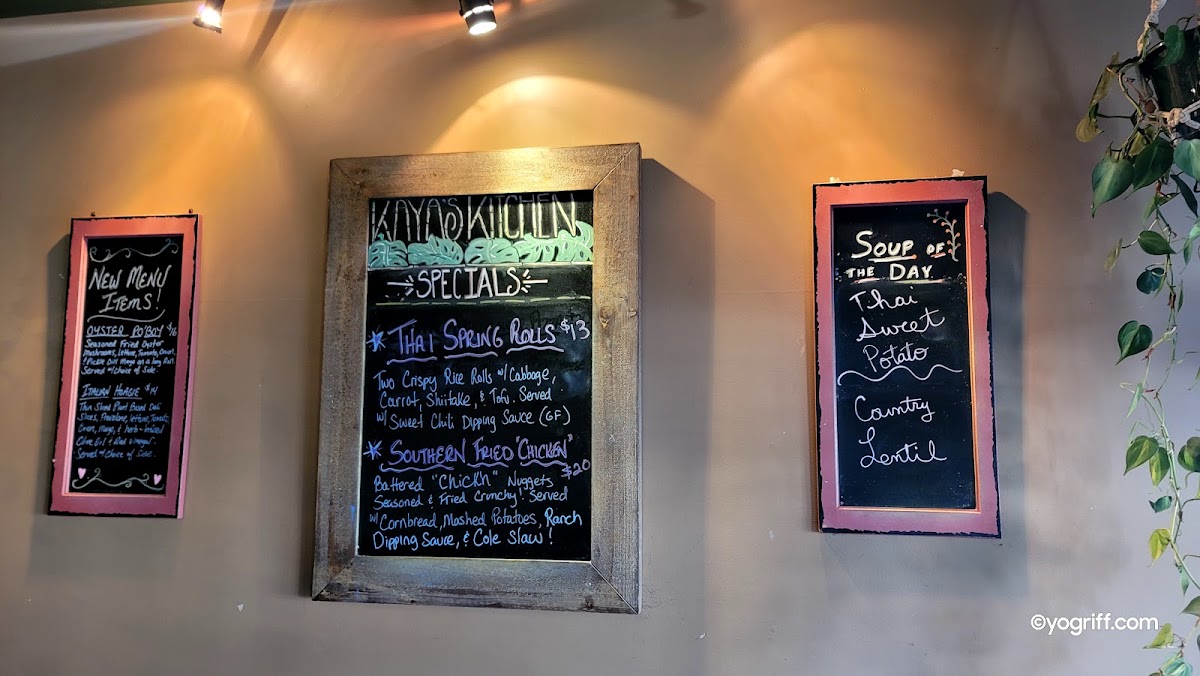 NEW MENU
ITEMS!
OYSTER PO'BOY $16
Seasoned Fried Oyster
Mushrooms, Lettuce, Tomato, Onion,
& Pickle Dill Mayo on a Long Roll
Served w/ choice of Side.
ITALIAN HOAGIE $14
Thin Sliced Plant Based Deli
Slices, Provolone, lettuce, Tomato,
Onion, Mayo, & herb-infused
Olive Oil & Red Vinegar.
Served w/ Choice of Side.
KAYA'S KITCHEN
SPECIALS
THAI SPRING ROLLS $13
Two Crispy Rice Rolls w/ Cabbage,
Carrot, Shiitake, & Tofu. Served
w/ Sweet Chili Dipping Sauce (GF)
SOUTHERN FRIED "CHICKEN"
$20
Battered "Chick'n" Nuggets
Seasoned & Fried Crunchy! Served
w/ Cornbread, Mashed Potatoes, Ranch
Dipping Sauce, & Cole Slaw!
SOUP OF
THE DAY
Thai
Sweet
Potato
Country
Lentil
©yogriff.com